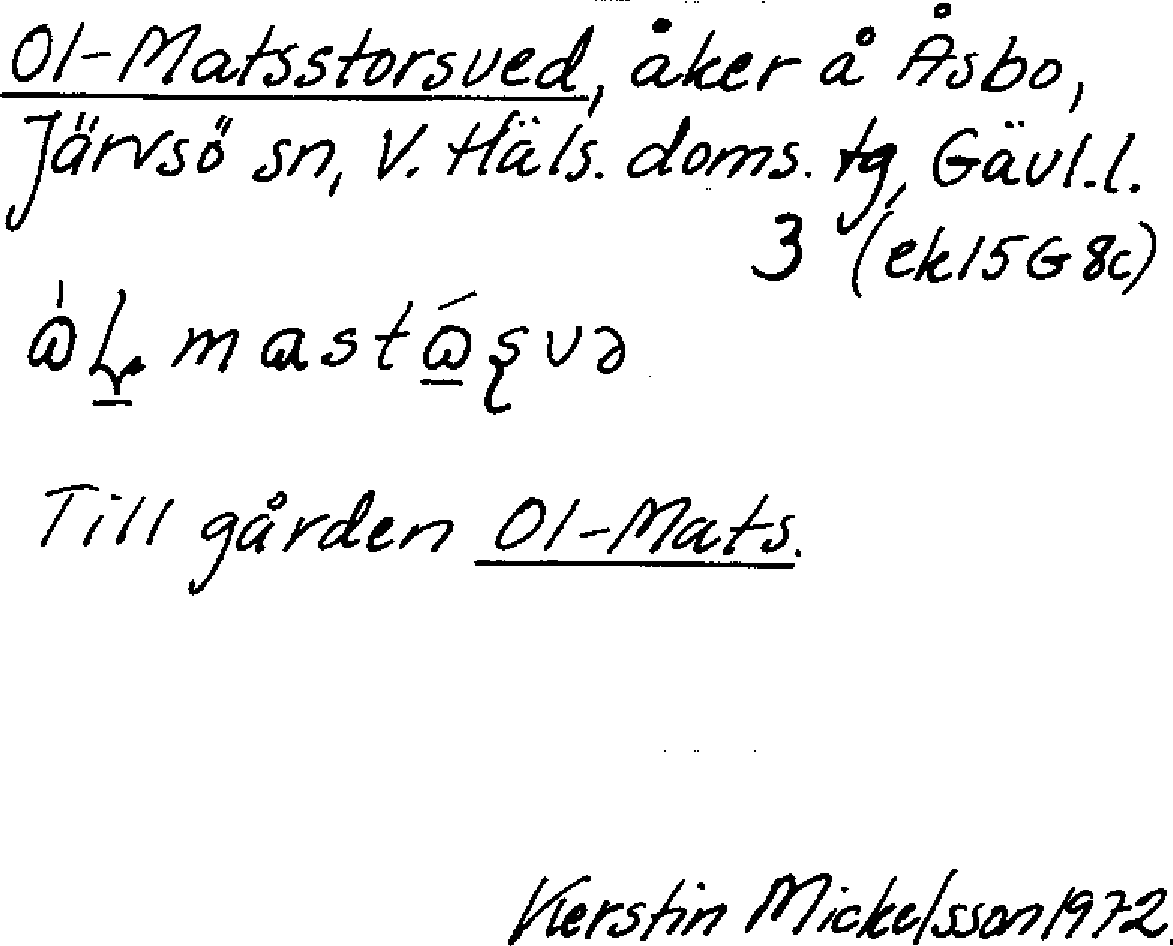 Ol-Matsstorsved, åker å Åsbo,
Järvsö sn, V. Häls. doms. tg, Gävl.l.
3 (ek 15G 8c)
Till gården Ol-Mats.
Kerstin Mickelsson 1972